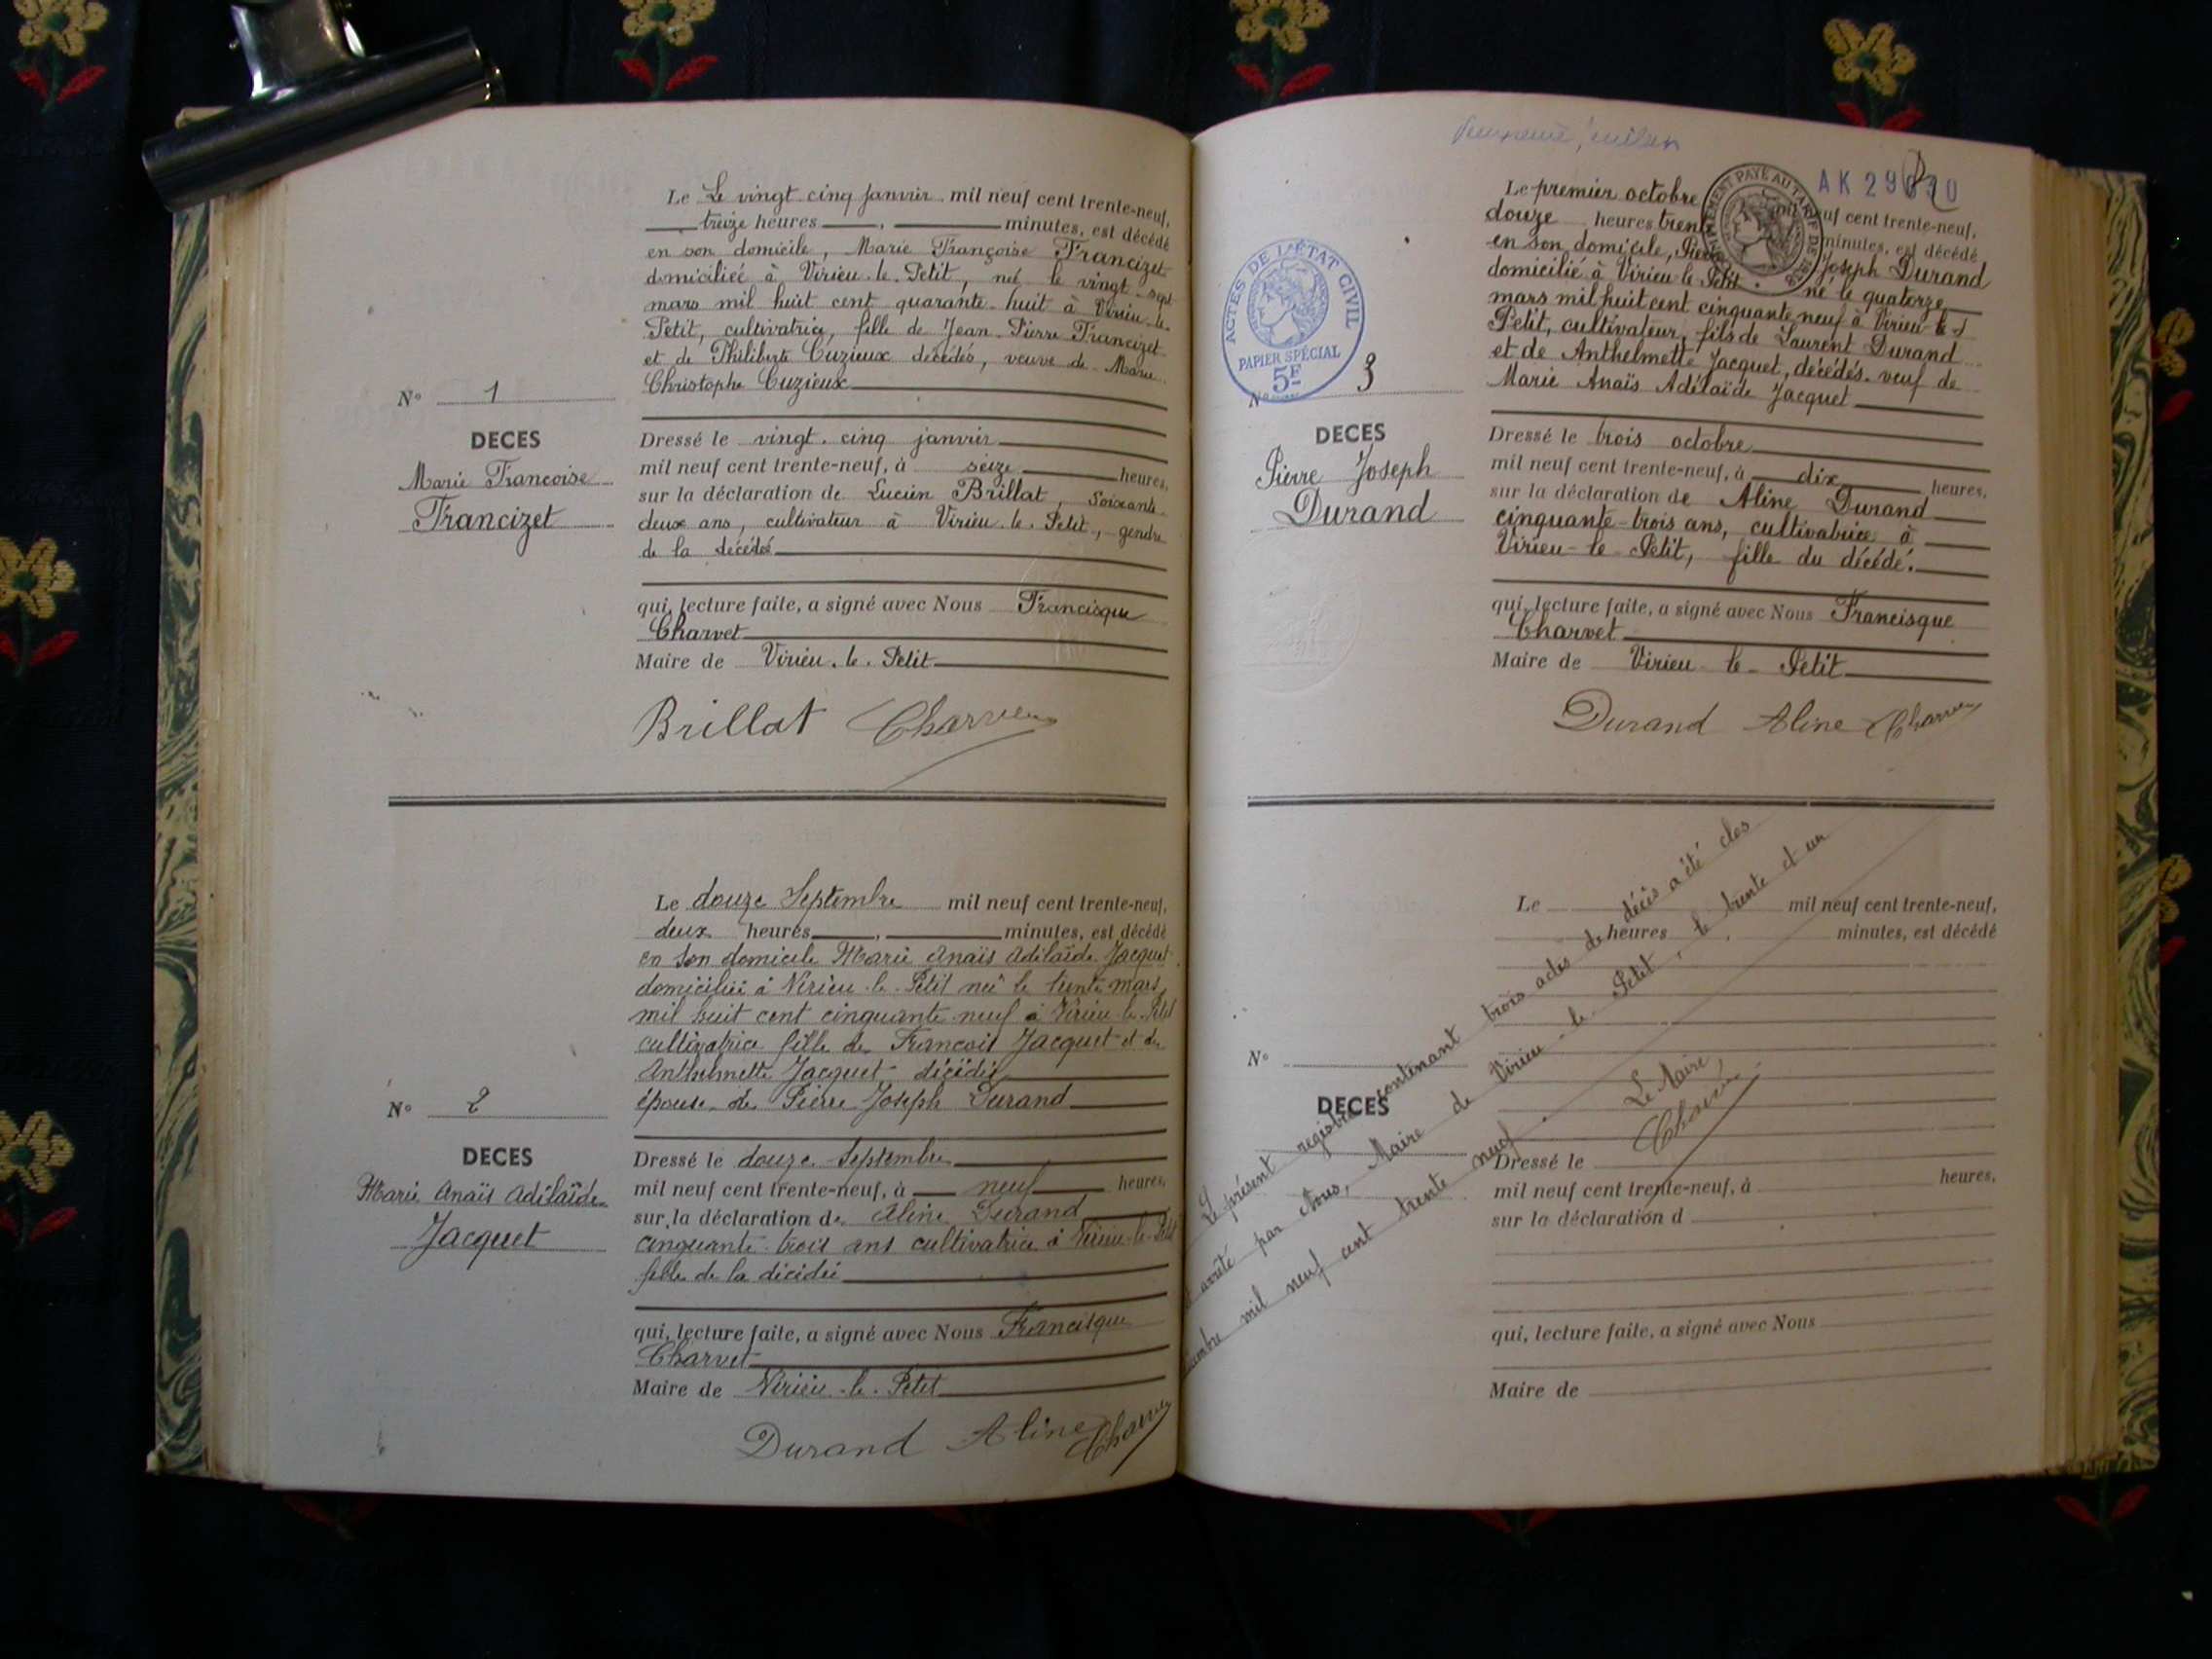 Le Le vingt cinq janvier mil neuf cent trente-neuf,
treize heures , minutes, est décédé
en son domicile, Marie Françoise Francizet
domiciliée à Virieu-le-Petit, née le vingt-sept
mars mil huit cent quarante-huit à Virieu-le-
Petit, cultivatrice, fille de Jean-Pierre Francizet
et de Philiberte Cuzieux décédés, veuve de Marie
Christophe Cuzieux
N° 1
DECES
Marie Francoise
Francizet
Dressé le vingt-cinq janvier
mil neuf cent trente-neuf, à seize heures,
sur la déclaration de Lucien Brillat, soixante-
deux ans, cultivateur à Virieu-le-Petit, gendre
de la décédée
qui, lecture faite, a signé avec Nous Francisque
Charvet
Maire de Virieu-le-Petit
Brillat Charvet
Le douze Septembre mil neuf cent trente-neuf,
deux heures , minutes, est décédé
en son domicile Marie Anaïs Adélaïde Jacquet
domiciliée à Virieu-le-Petit née le trente mars
mil huit cent cinquante-neuf à Virieu-le-Petit
cultivatrice fille de Francois Jacquet et de
Anthelmette Jacquet décédés
épouse de Pierre Joseph Durand
N° 2
DECES
Marie Anaïs Adélaïde
Jacquet
Dressé le douze Septembre
mil neuf cent trente-neuf, à neuf heures,
sur la déclaration de Aline Durand
cinquante-trois ans cultivatrice à Virieu-le-Petit
fille de la décédée
qui, lecture faite, a signé avec Nous Francisque
Charvet
Maire de Virieu-le-Petit
Durand Aline Charvet
AK 29
TIMBREMENT PAYÉ AU TARIF DE
ACTES DE L'ÉTAT CIVIL
PAPIER SPÉCIAL
5F
Le premier octobre mil neuf cent trente-neuf,
douze heures trente minutes, est décédé
en son domicile, Pierre Joseph Durand
domicilié à Virieu-le-Petit né le quatorze
mars mil huit cent cinquante neuf à Virieu-le-
Petit, cultivateur, fils de Laurent Durand
et de Anthelmette Jacquet, décédés. veuf de
Marie Anaïs Adélaïde Jacquet
N° 3
DECES
Pierre Joseph
Durand
Dressé le trois octobre
mil neuf cent trente-neuf, à dix heures,
sur la déclaration de Aline Durand
cinquante-trois ans, cultivatrice à
Virieu-le-Petit, fille du décédé.
qui, lecture faite, a signé avec Nous Francisque
Charvet
Maire de Virieu-le-Petit
Durand Aline Charvet
Le mil neuf cent trente-neuf,
heures , minutes, est décédé
N°
DECES
Dressé le
mil neuf cent trente-neuf, à heures,
sur la déclaration d
qui, lecture faite, a signé avec Nous
Maire de
Le présent registre contenant trois actes de décès a été clos
arrêté par Nous, Maire de Virieu-le-Petit, le trente et un
mil neuf cent trente neuf.
Le Maire,
Charvet